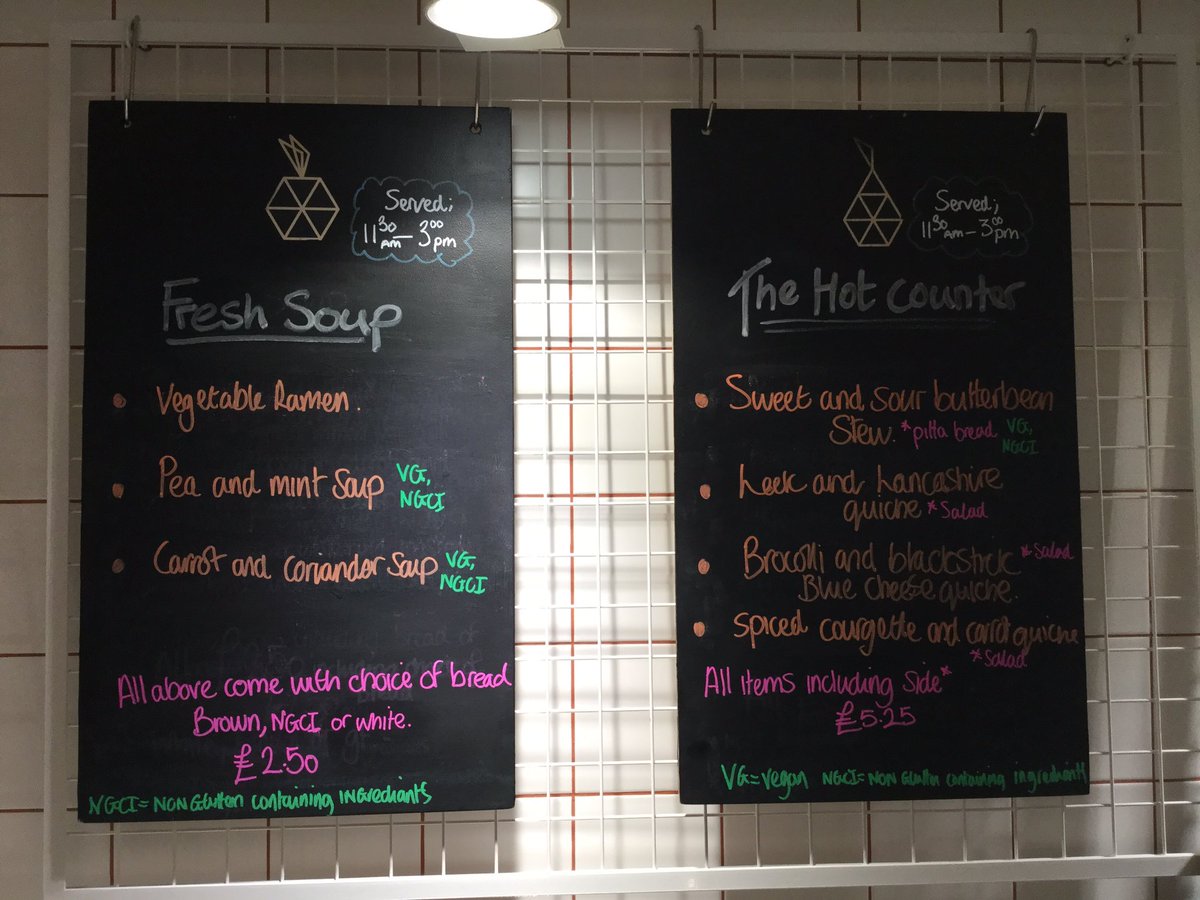 Served;
11 30 AM – 3 00 pm
Fresh Soup
Vegetable Ramen.
Pea and mint Soup VG,
NGCI
Carrot and coriander Soup VG,
NGCI
All above come with choice of bread
Brown, NGCI or white.
£2.50
NGCI = NON Glutten containing INGrediants
Served;
11 30 AM – 3 00 pm
The Hot Counter
Sweet and Sour butterbean
Stew. *pitta bread VG,
NGCI
Leek and Lancashire
quiche *Salad
Brocolli and blackstick *Salad
Blue Cheese quiche.
Spiced courgette and carrot quiche
*Salad
All Items including Side*
£5.25
VG = vegan NGCI = NON Glutten containing ingrediants